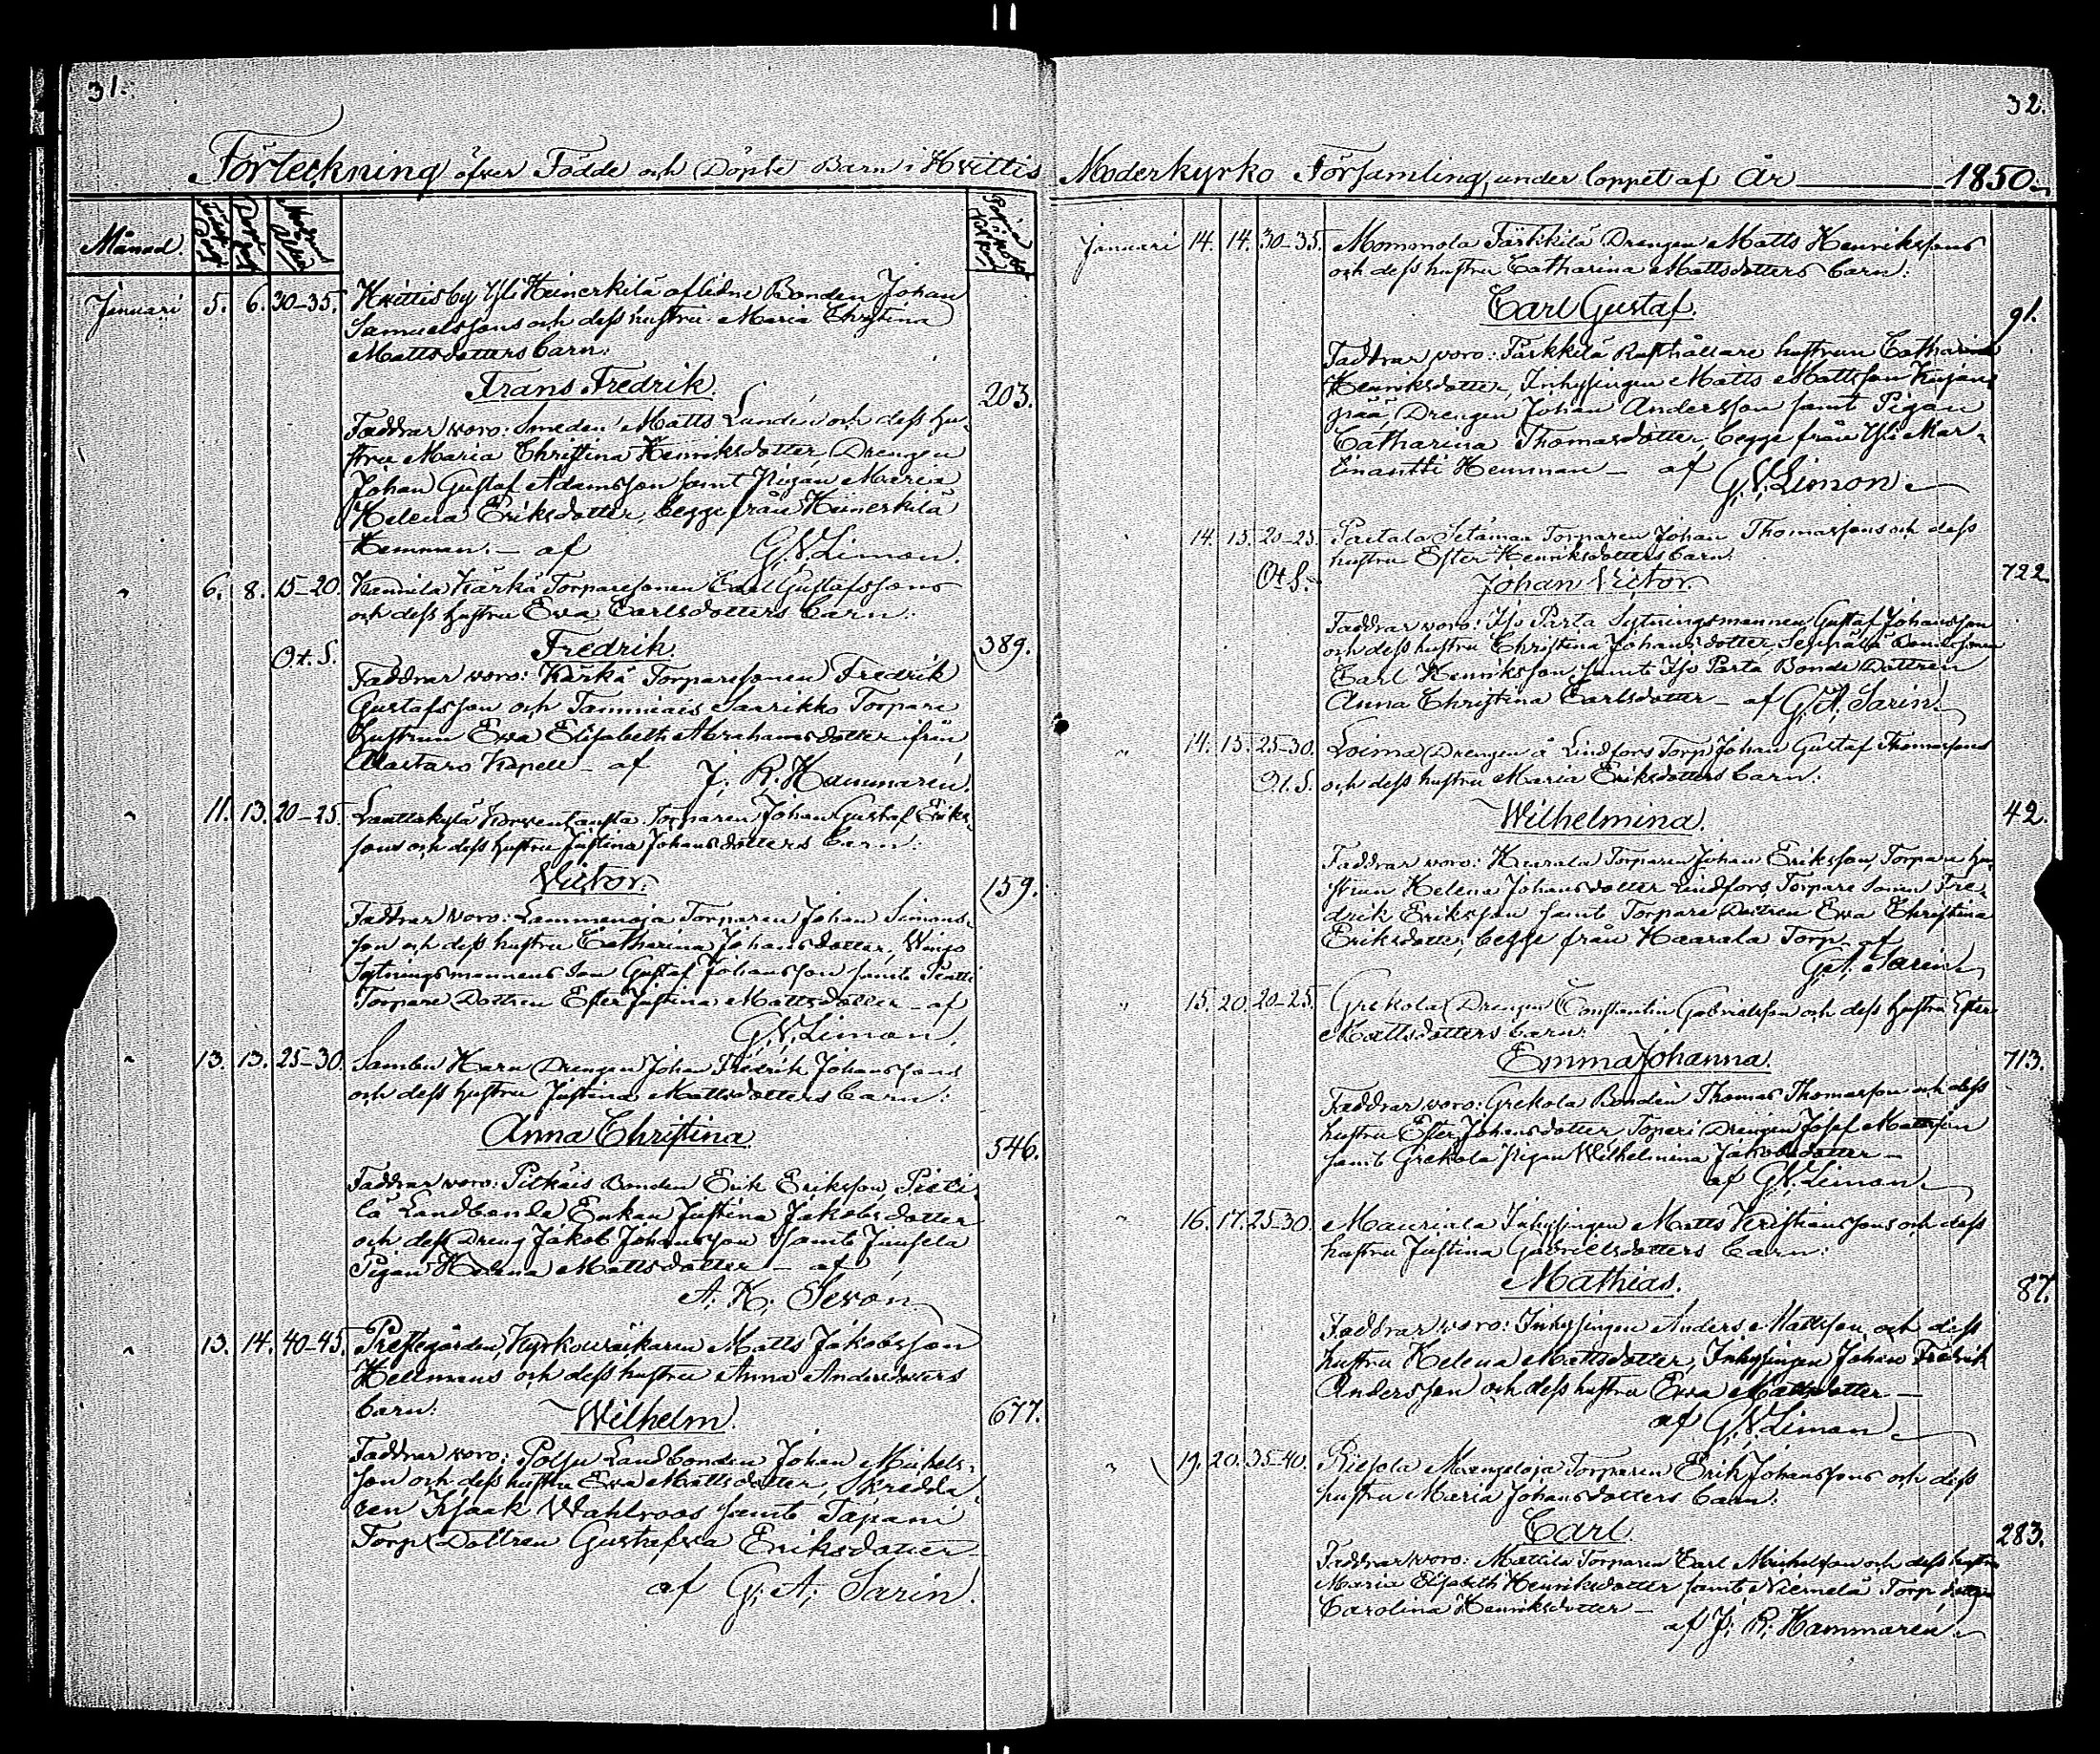 31.
Förteckning öfver Födde och Döpte Barn i Hvittis
Månad.
Januari 5. 6. 30-35. Hvittisby Yli Heinerkilä aflidne Bonden Johan
Samuelssons och dess hustru Maria Christina
Mattsdotters barn:
Frans Fredrik. 203.
Faddrar woro: Smeden Matts Lundén och dess hu-
stru Maria Christina Henriksdotter, Drengen
Johan Gustaf Adamsson samt Pigan Maria
Helena Eriksdotter, begge från Heinerkilä
Hemman. - af G. V. Limon.
" 6. 8. 15-20. Kärkä Torparesonen Carl Gustafssons
och dess hustru Eva Carlsdotters barn:
O.t.S. Fredrik. 389.
Faddrar woro: Kärkä Torparesonen Fredrik
Gustafsson och Tammiais Saarikko Torpare
hustrun Eva Elisabeth Abrahamsdotter ifrån
Alastaro Kapell - af J. R. Hammarén.
" 11. 13. 20-25. Torparen Johan Gustaf Eriks-
sons och dess hustru Justina Johansdotters barn:
Victor. 159.
Faddrar woro: Lammenoja Torparen Johan Simons-
son och dess hustru Catharina Johansdotter,
Sytningsmannens Son Gustaf Johansson samt
Torpare Dottren Ester Justina Mattsdotter - af
G. V. Limon.
" 13. 13. 25-30. Sambu Drengen Johan Fredrik Johanssons
och dess hustru Justina Mattsdotters barn:
Anna Christina. 546.
Faddrar woro: Pitkäis Bonden Erik Eriksson, Pieti-
lä Landbonde Enkan Justina Jakobsdotter
och dess Dreng Jakob Johansson samt Junsela
Pigan Helena Mattsdotter - af
A. K. Sevón
" 13. 14. 40-45. Prestegården, Kyrkowäktaren Matts Jakobsson
Hellmans och dess hustru Anna Andersdotters
barn: Wilhelm. 677.
Faddrar woro: Polsu Landbonden Johan Michels-
son och dess hustru Eva Mattsdotter, Skredda-
ren Isaak Wahlroos samt Tapani
Torp Dottren Gustafva Eriksdotter
af G. A. Sarin.
32.
Moderkyrko Församling, under loppet af År 1850.
Januari 14. 14. 30-35. Mommola Pärkkilä Drengen Matts Henrikssons
och dess hustru Catharina Mattsdotters barn:
Carl Gustaf. 91.
Faddrar woro: Pärkkilä Rusthållare hustrun Catharina
Henriksdotter, Inhysingen Matts Mattsson Kujan-
pää, Drengen Johan Andersson samt Pigan
Catharina Thomasdotter, begge från Yli Mar-
Hemman - af G. V. Limon
" 14. 15. 20-25. Torparen Johan Thomassons och dess
hustru Ester Henriksdotters barn:
O.t.S. Johan Victor. 722.
Faddrar woro: Iso Parta Sytningsmannen Gustaf Johansson
och dess hustru Christina Johansdotter, Seppälä Bondesonen
Carl Henriksson samt Iso Parta Bonde Dottren
Anna Christina Carlsdotter - af G. A. Sarin.
" 14. 15. 25-30. Loima Drengen å Lindfors Torp Johan Gustaf Thomassons
O.t.S. och dess hustru Maria Eriksdotters barn:
Wilhelmina. 42.
Faddrar woro: Haarala Torparen Johan Eriksson, Torpare hu-
strun Helena Johansdotter Lindfors, Torpare Sonen Fre-
drik Eriksson samt Torpare Dottren Eva Christina
Eriksdotter, begge från Haarala Torp - af
G. A. Sarin
" 15. 20. 20-25. Grekola Drengen Constantin Gabrielsson och dess hustru Ester
Mattsdotters barn:
Emma Johanna. 713.
Faddrar woro: Grekola Bonden Thomas Thomasson och dess
hustru Ester Johansdotter, Topari Drengen Josef Mattsson
samt Grekola Pigan Wilhelmina Jakobsdotter -
af G. V. Limon
" 16. 17. 25-30. Mauriala Inhysingen Matts Kristianssons och dess
hustru Justina Gabrielsdotters barn:
Mathias. 87.
Faddrar woro: Inhysingen Anders Mattsson och dess
hustru Helena Mattsdotter, Inhysingen Johan Fredrik
Andersson och dess hustru Eva Mattsdotter -
af G. V. Limon
" 19. 20. 35-40. Riesola Torparen Erik Johanssons och dess
hustru Maria Johansdotters barn:
Carl. 283.
Faddrar woro: Mattila Torparen Carl Michelsson och dess hustru
Maria Elisabeth Henriksdotter samt Niemelä Torp
Carolina Henriksdotter -
af J. R. Hammarén